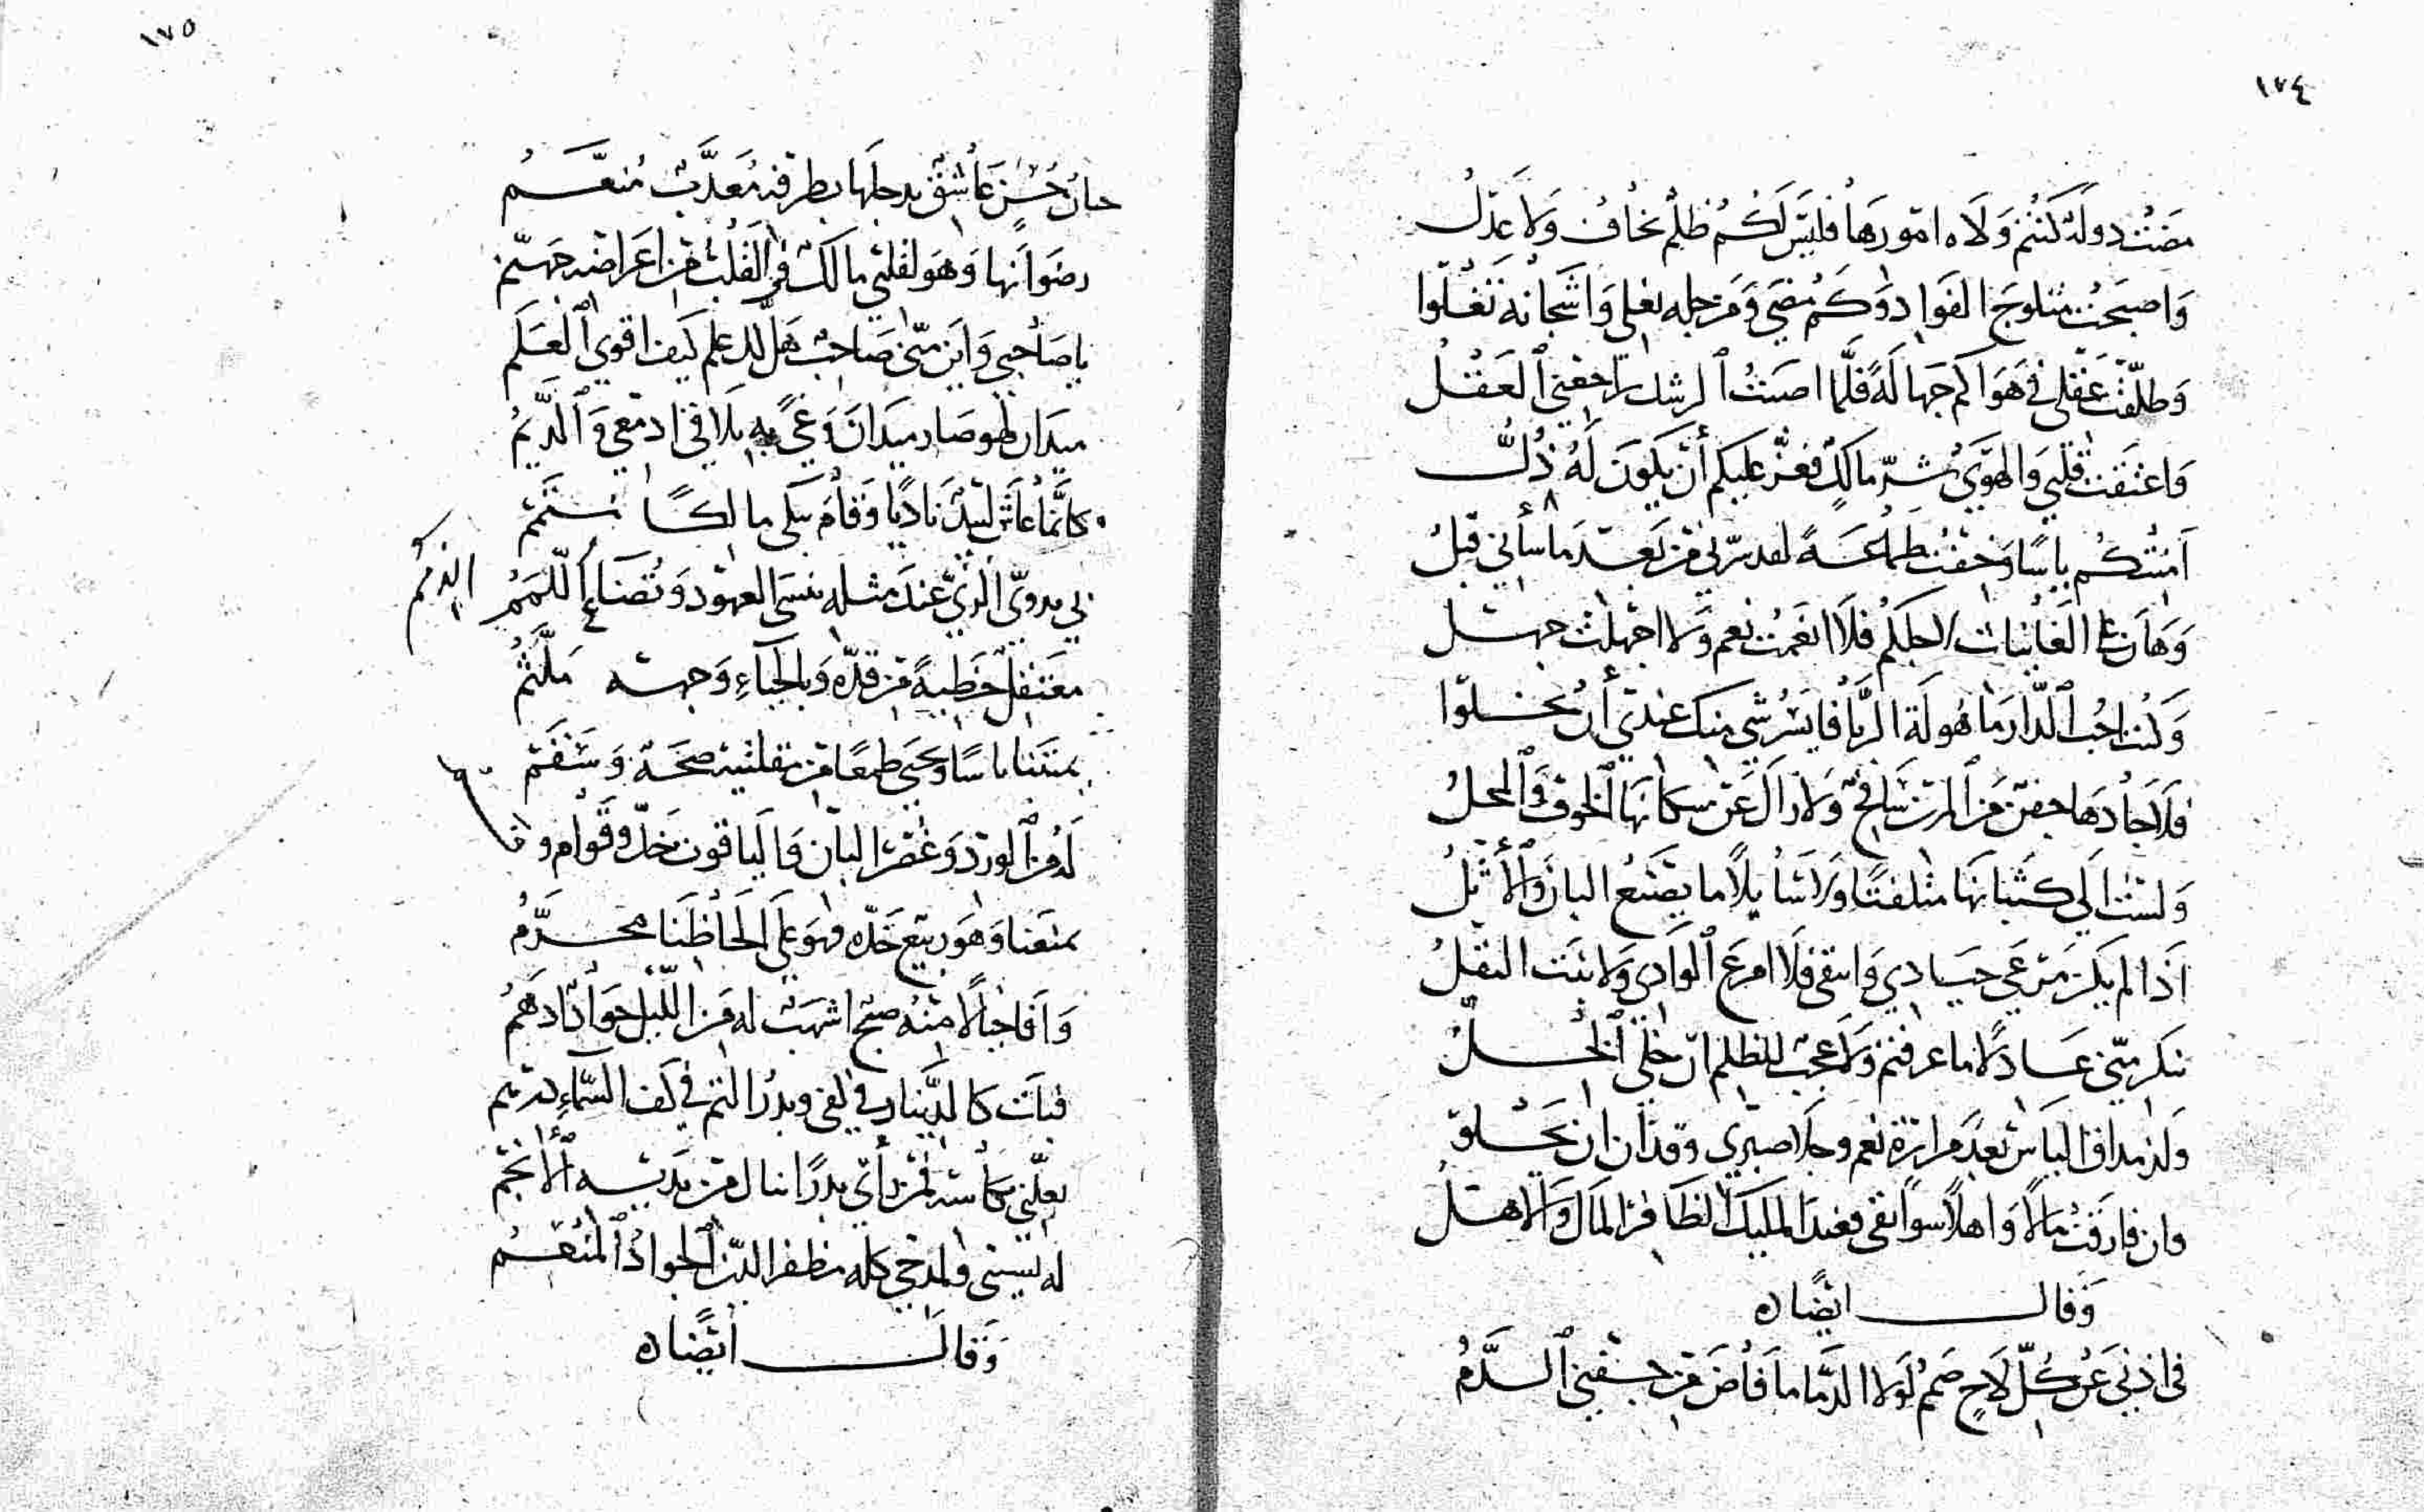 ١٧٤
مضت دولة كنتم ولاه امورها فليس لكم ظلم يخاف ولا عدل
واصبحت مثلوج الفواد وكم مضى ومرجله يغلي واشجانه تغلوا
وطلقت عقلي في هواكم جهالة فلما اصبت الرشد راجعني العقل
واعتقت قلبي والهوى شر مالك فعز عليكم أن يكون له ذل
امنتكم ياسا وخفت طماعة لقد سرني من بعد ما سأني قبل
وهان علي الغانيات لاجلكم فلا انعمت نعم ولا اجملت جمل
وكنت احب الدار ماهولة الربا فايسر شي منك عندي أن تخلوا
فلا جادها جفن من المزن سافح ولا زال عن سكانها الخوف والمحل
ولست الى كثبانها متلفتا ولا سايلا ما يصنع البان والأثل
اذا لم يكن مرعى جيادي واينقي فلا امرع الوادي ولا نبت البقل
تنكر مني عادلا ما عرفتم ولا عجب للظلم ان خلي الخل
ولذ مذاق الياس بعد مرارة نعم وحلا صبري وقد ان ان يحلو
وان فارقت مالا واهلا سوابقي فعند المليك الظافر المال والاهل
وقال ايضا
في اذني عن كل لاح صمم لولا الدما ما فاض من جفني الدم
١٧٥
جنان حسن عاشق يدخلها بطرفه معذب منعم
رضوانها وهو لقلبي مالك في القلب من اعراضه جهنم
يا صاحبي واين مني صاحب هل لك علم كيف اقوى العلم
ميدان لهو صار ميدان وغى به تلاقى ادمعي والديم
كانما عاش لبيد ناديا وقام يبكي مالكا متمم
بي بدوي الزي عند مثله تنسى العهود وتضاع اللمم الذمم
معتقل خطية من قده وبالحياء وجهه ملثم
يميتنا ياسا ويحيى طمعا من مقلتيه صحة وسقم
له من الورد وغصن البان والياقوت خد وقوام وفم
يمنعنا وهو ربيع خده فهو على الحاظنا محرم
وافا جبالا منه صبح اشهب له من الليل جواد ادهم
فبات كالدينار في كفي وبدر التم في كف السماء درهم
يعلني كأسه فمن رأى بدرا تنال من يديه الأنجم
له نسيبي والمدح كله مظفر الدين الجواد المنعم
وقال أيضا